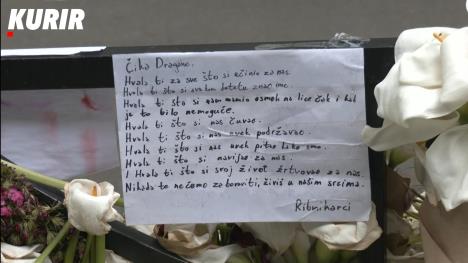 KURIR
Čika Dragane,
Hvala ti za sve što si učinio za nas.
Hvala ti što si svakom detetu znao ime.
Hvala ti što si nam mamio osmeh na lice čak i kad
je to bilo nemoguće.
Hvala ti što si nas čuvao.
Hvala ti što si nas uvek podržavao.
Hvala ti što si nas uvek pitao kako smo.
Hvala ti što si navijao za nas.
I Hvala ti što si svoj život žrtvovao za nas.
Nikada te nećemo zaboraviti, živiš u našim srcima.
Ribnikarci